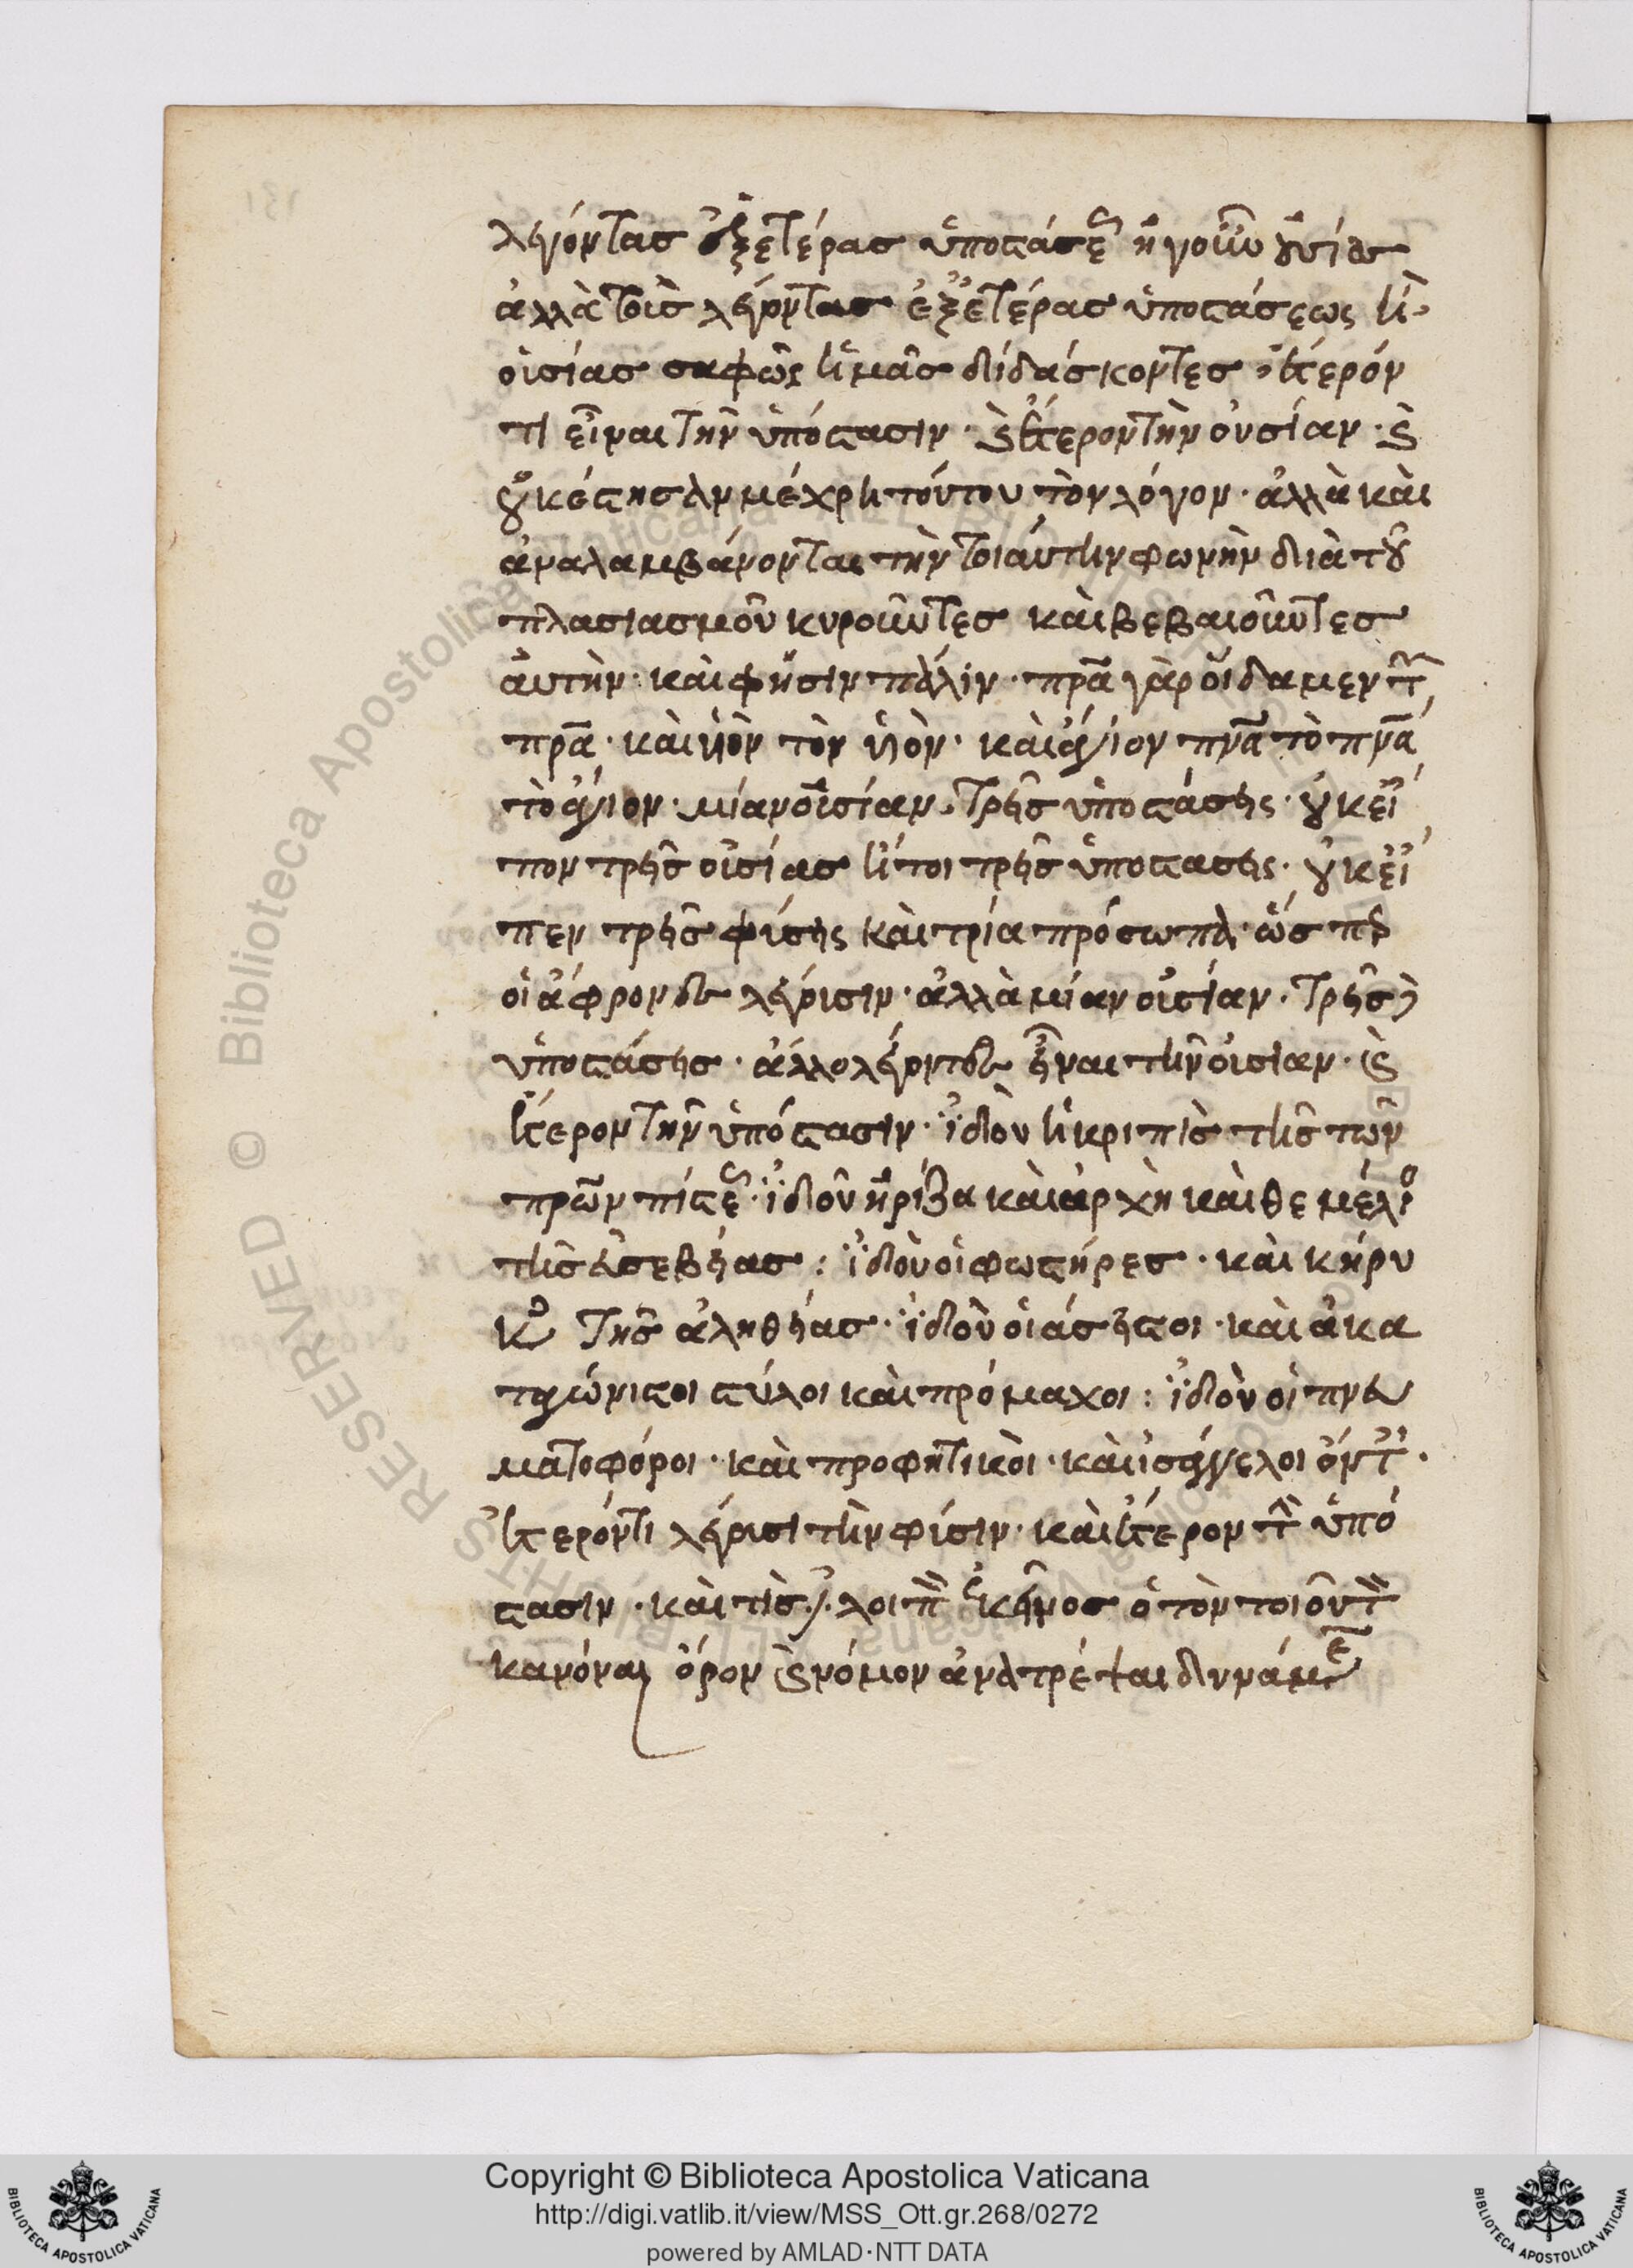 λεγόντας ἐξ ἑτέρας ὑποστάσε ἤγουν οὐσίας
ἀλλὰ τοὺς λέγοντας ἐξ ἑτέρας ὑποστάσεως ἢ
οὐσίας σαφῶς ἡμᾶς διδάσκοντες ἕτερόν
τι εἶναι τὴν ὑπόστασιν· καὶ ἕτερον τὴν οὐσίαν· καὶ
οὐκ ἔστησαν μέχρη τούτου τὸν λόγον· ἀλλὰ καὶ
ἀναλαμβάνονται τὴν τοιάυτην φωνὴν διὰ τοῦ
πλασιασμοῦ κυροῦντες καὶ βεβαιοῦντες
ἀυτὴν· καὶ φησὶν πάλιν· πρα γὰρ οἴδαμεν τ
πρα· καὶ υἱὸν τὸν υἱὸν· καὶ ἅγιον πνα τὸ πνα
τὸ ἅγιον· μίαν οὐσίαν· τρεῖς ὑποστάσεις· οὐκ εἶ
πον τρεῖς οὐσίας ἤτοι τρεῖς ὑποστασεις· οὐκ εἶ
πεν τρεῖς φύσεις καὶ τρία πρόσωπα· ὥσπερ
οἱ ἄφρονες λέγουσιν· ἀλλὰ μίαν οὐσίαν· τρεῖς
ὑποστάσεις· ἄλλο λέγοντες εἶναι τὴν οὐσίαν· καὶ
ἕτερον τὴν ὑπόστασιν· ἰδοὺ ἡ κριπὶς τῆς τῶν
πρων πίστε· ἰδοὺ ἡ ρίζα καὶ ἀρχὴ καὶ θεμέλιο
τῆς εὐσεβείας: ἰδοὺ οἱ φωστήρες· καὶ κήρυ
κες τῆς ἀληθείας· ἰδοὺ οἱ άσειστοι· καὶ ἀκα
ταγώνιστοι στύλοι καὶ πρόμαχοι: ἰδοὺ οἱ πνευ
ματοφόροι· καὶ προφητικοὶ· καὶ ἰσάγγελοι ὄντ·
ἕτερόν τι λέγουσι τὴν φύσιν· καὶ ἕτερον τὴν ὑπό
στασιν· καὶ τὶς λοιπὸν ἐκεῖνος ὁ τὸν τοιοῦτον
κανόναι ὅρον καὶ νόμον ἀνατρέψαι δυνάμε